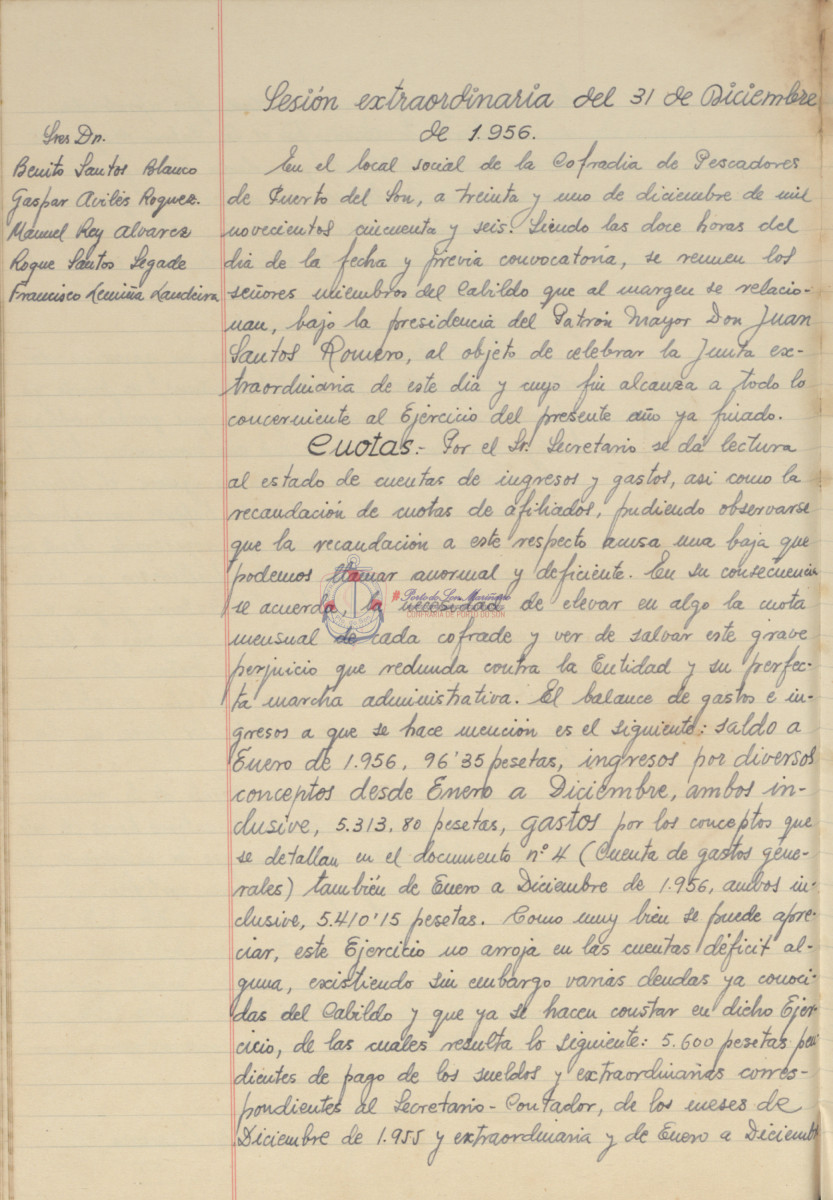 Sesión extraordinaria del 31 de Diciembre
de 1.956.
Sres Dn.
Benito Santos Blanco
Gaspar Avilés Roguez.
Manuel Rey Alvarez
Roque Santos Segade
Francisco Lemiña Landeira
En el local social de la Cofradia de Pescadores
de Puerto del Son, a treinta y uno de diciembre de mil
novecientos cincuenta y seis. Siendo las doce horas del
dia de la fecha y previa convocatoria, se reunen los
señores miembros del Cabildo que al margen se relacio-
nan, bajo la presidencia del Patrón Mayor Don Juan
Santos Romero, al objeto de celebrar la Junta ex-
traordinaria de este dia y cuyo fin alcanza a todo lo
concerniente al Ejercicio del presente año ya finado.
Cuotas.- Por el Sr. Secretario se da lectura
al estado de cuentas de ingresos y gastos, asi como la
recaudación de cuotas de afiliados, pudiendo observarse
que la recaudación a este respecto acusa una baja que
podemos llamar anormal y deficiente. En su consecuencia
se acuerda la necesidad de elevar en algo la cuota
mensual de cada cofrade y ver de salvar este grave
perjuicio que redunda contra la Entidad y su perfec-
ta marcha administrativa. El balance de gastos e in-
gresos a que se hace mención es el siguiente: saldo a
Enero de 1.956, 96'35 pesetas, ingresos por diversos
conceptos desde Enero a Diciembre, ambos in-
clusive, 5.313,80 pesetas, gastos por los conceptos que
se detallan en el documento nº 4 (Cuenta de gastos gene-
rales) también de Enero a Diciembre de 1.956, ambos in-
clusive, 5.410'15 pesetas. Como muy bien se puede apre-
ciar, este Ejercicio no arroja en las cuentas déficit al-
guna, existiendo sin embargo varias deudas ya conoci-
das del Cabildo y que ya se hacen constar en dicho Ejer-
cicio, de las cuales resulta lo siguiente: 5.600 pesetas pen
dientes de pago de los sueldos y extraordinarias corres-
pondientes al Secretario-Contador, de los meses de
Diciembre de 1.955 y extraordinaria y de Enero a Diciembre
# Porto do Son Mariñeiro
CONFRARÍA DE PORTO DO SON